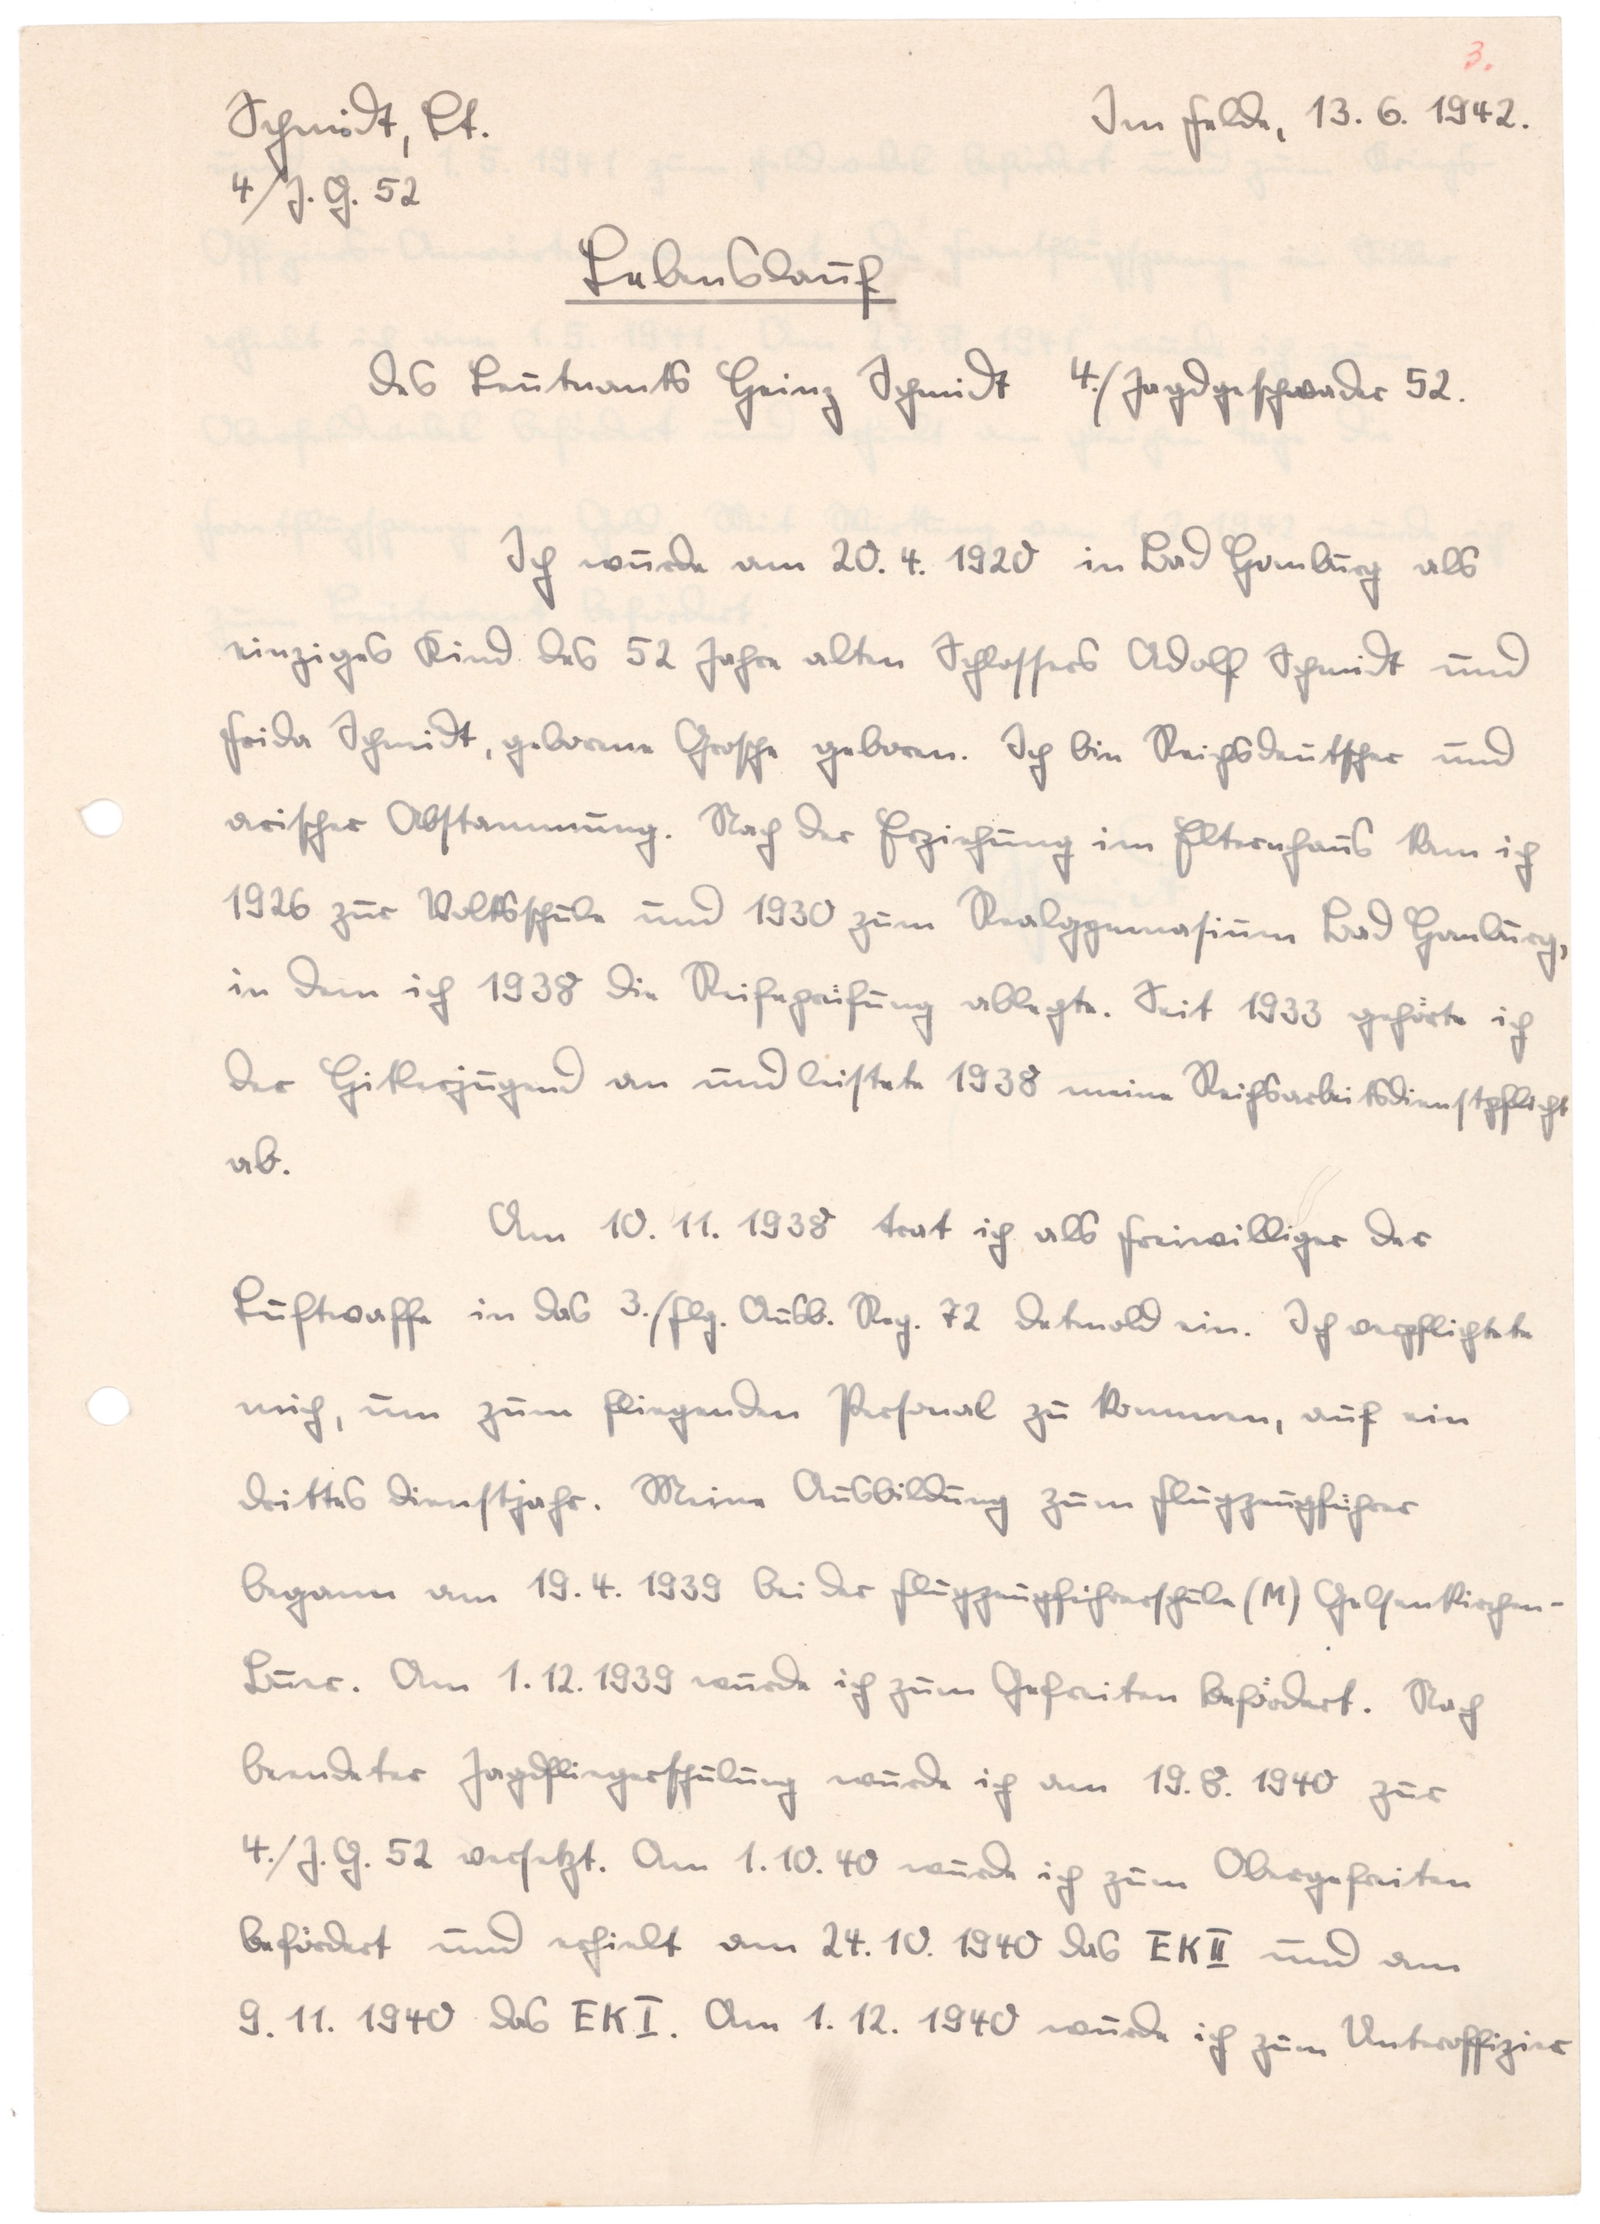 3.
Schmidt, Lt.
Im Felde, 13. 6. 1942.
4/J. G. 52
Lebenslauf
des Leutnants Heinz Schmidt 4./Jagdgeschwader 52.
Ich wurde am 20. 4. 1920 in Bad Homburg als
einziges Kind des 52 Jahre alten Schlossers Adolf Schmidt und
Frida Schmidt, geborene Grosche geboren. Ich bin Reichsdeutscher und
arischer Abstammung. Nach der Erziehung im Elternhaus kam ich
1926 zur Volksschule und 1930 zum Realgymnasium Bad Homburg,
in dem ich 1938 die Reifeprüfung ablegte. Seit 1933 gehörte ich
der Hitlerjugend an und leistete 1938 meine Reichsarbeitsdienstpflicht
ab.
Am 10. 11. 1938 trat ich als Freiwilliger der
Luftwaffe in das 3./Flg. Ausb. Reg. 72 Detmold ein. Ich verpflichtete
mich, um zum fliegenden Personal zu kommen, auf ein
drittes Dienstjahr. Meine Ausbildung zum Flugzeugführer
begann am 19. 4. 1939 bei der Flugzeugführerschule (M) Gelsenkirchen-
Buer. Am 1. 12. 1939 wurde ich zum Gefreiten befördert. Nach
beendeter Jagdfliegerschulung wurde ich am 19. 8. 1940 zur
4./J. G. 52 versetzt. Am 1. 10. 40 wurde ich zum Obergefreiten
befördert und erhielt am 24. 10. 1940 das EK II und am
9. 11. 1940 das EK I. Am 1. 12. 1940 wurde ich zum Unteroffizier